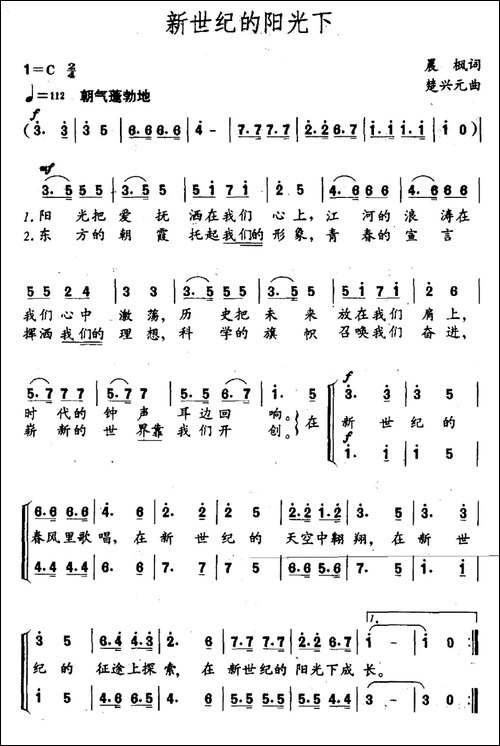 新世纪的阳光下
1=C 2/4
晨枫词
♩=112 朝气蓬勃地
楚兴元曲
f
(3. 3 | 3 5 | 6.6 6.6 | 4 - | 7.7 7.7 | 2.2 6.6 | 1.1 1.1 | 1 0)
mf
3. 5 5 5 | 3. 5 5 | 5 1 7 1 | 2 5 | 4. 6 6 6 | 4. 6 6 6
1.阳光把爱抚洒在我们心上,江河的浪涛在
2.东方的朝霞托起我们的形象,青春的宣言
5 5 2 4 | 3 3 | 3. 5 5 5 | 3. 5 5 | 5 1 7 1 | 2 6
我们心中激荡,历史把未来放在我们肩上,
挥洒我们的理想,科学的旗帜召唤我们奋进,
5. 7 7 7 | 5. 7 7 | 5. 7 6 7 | 1. 5 | 3. 3 | 3 5
时代的钟声耳边回响。在新世纪的
崭新的世界靠我们开创。
f
1. 1 | 1 5
6.6 6.6 | 4. 6 | 2. 2 | 2 5 | 2.2 1.2 | 3. 5 | 3. 3
春风里歌唱,在新世纪的天空中翱翔,在新世
4.4 4.4 | 6. 6 | 7. 7 | 7 5 | 6.6 5.6 | 7. 5 | 1. 1
1.
3 5 | 6.4 4.3 | 2. 6 | 7.7 7.7 | 2.2 6.7 | 1 - | 1 0
纪的征途上探索,在新世纪的阳光下成长。
1 5 | 4.6 6.5 | 4. 4 | 5.5 5.5 | 5.5 4.4 | 3 - | 3 0